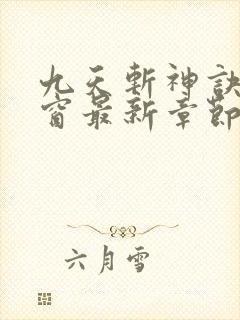 九天斬神訣
窗最新章節
六月雪